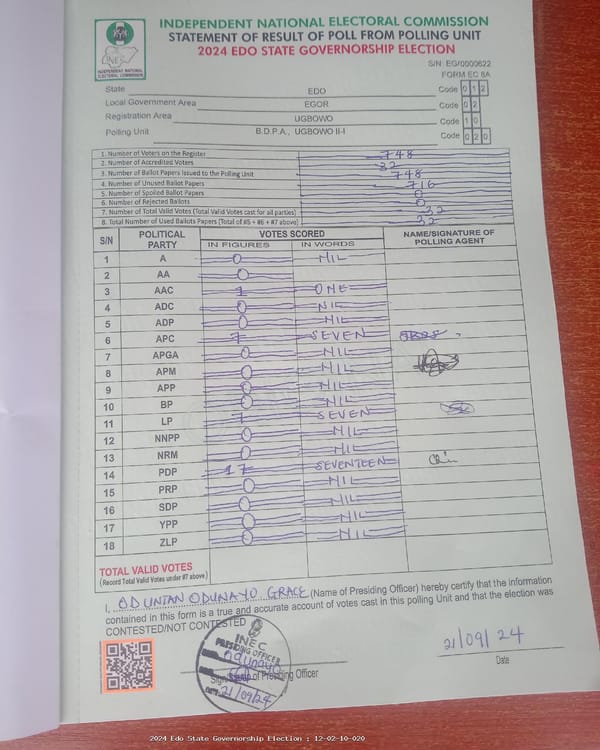 INDEPENDENT NATIONAL ELECTORAL COMMISSION
STATEMENT OF RESULT OF POLL FROM POLLING UNIT
2024 EDO STATE GOVERNORSHIP ELECTION
INEC
INDEPENDENT NATIONAL ELECTORAL COMMISSION
S/N: EG/0000622
FORM EC 8A
State EDO Code 0 1 2
Local Government Area EGOR Code 0 2
Registration Area UGBOWO Code 1 0
Polling Unit B.D.P.A., UGBOWO II-I Code 0 2 0
1. Number of Voters on the Register 748
2. Number of Accredited Voters 32
3. Number of Ballot Papers Issued to the Polling Unit 748
4. Number of Unused Ballot Papers 716
5. Number of Spoiled Ballot Papers 0
6. Number of Rejected Ballots 0
7. Number of Total Valid Votes (Total Valid Votes cast for all parties) 32
8. Total Number of Used Ballots Papers (Total of #5 + #6 + #7 above) 32
S/N POLITICAL PARTY VOTES SCORED NAME/SIGNATURE OF POLLING AGENT
IN FIGURES IN WORDS
1 A 0 NIL
2 AA 0
3 AAC 1 ONE
4 ADC 0 NIL
5 ADP 0 NIL
6 APC 7 SEVEN
7 APGA 0 NIL
8 APM 0 NIL
9 APP 0 NIL
10 BP 0 NIL
11 LP 7 SEVEN
12 NNPP 0 NIL
13 NRM 0 NIL
14 PDP 17 SEVENTEEN
15 PRP 0 NIL
16 SDP 0 NIL
17 YPP 0 NIL
18 ZLP 0 NIL
TOTAL VALID VOTES
(Record Total Valid Votes under #7 above)
I, ODUNTAN ODUNAYO GRACE (Name of Presiding Officer) hereby certify that the information
contained in this form is a true and accurate account of votes cast in this polling Unit and that the election was
CONTESTED/NOT CONTESTED
INEC
PRESIDING OFFICER
Odunayo
DATE 21/09/24
Presiding Officer
21/09/24
Date
2024 Edo State Governorship Election : 12-02-10-020